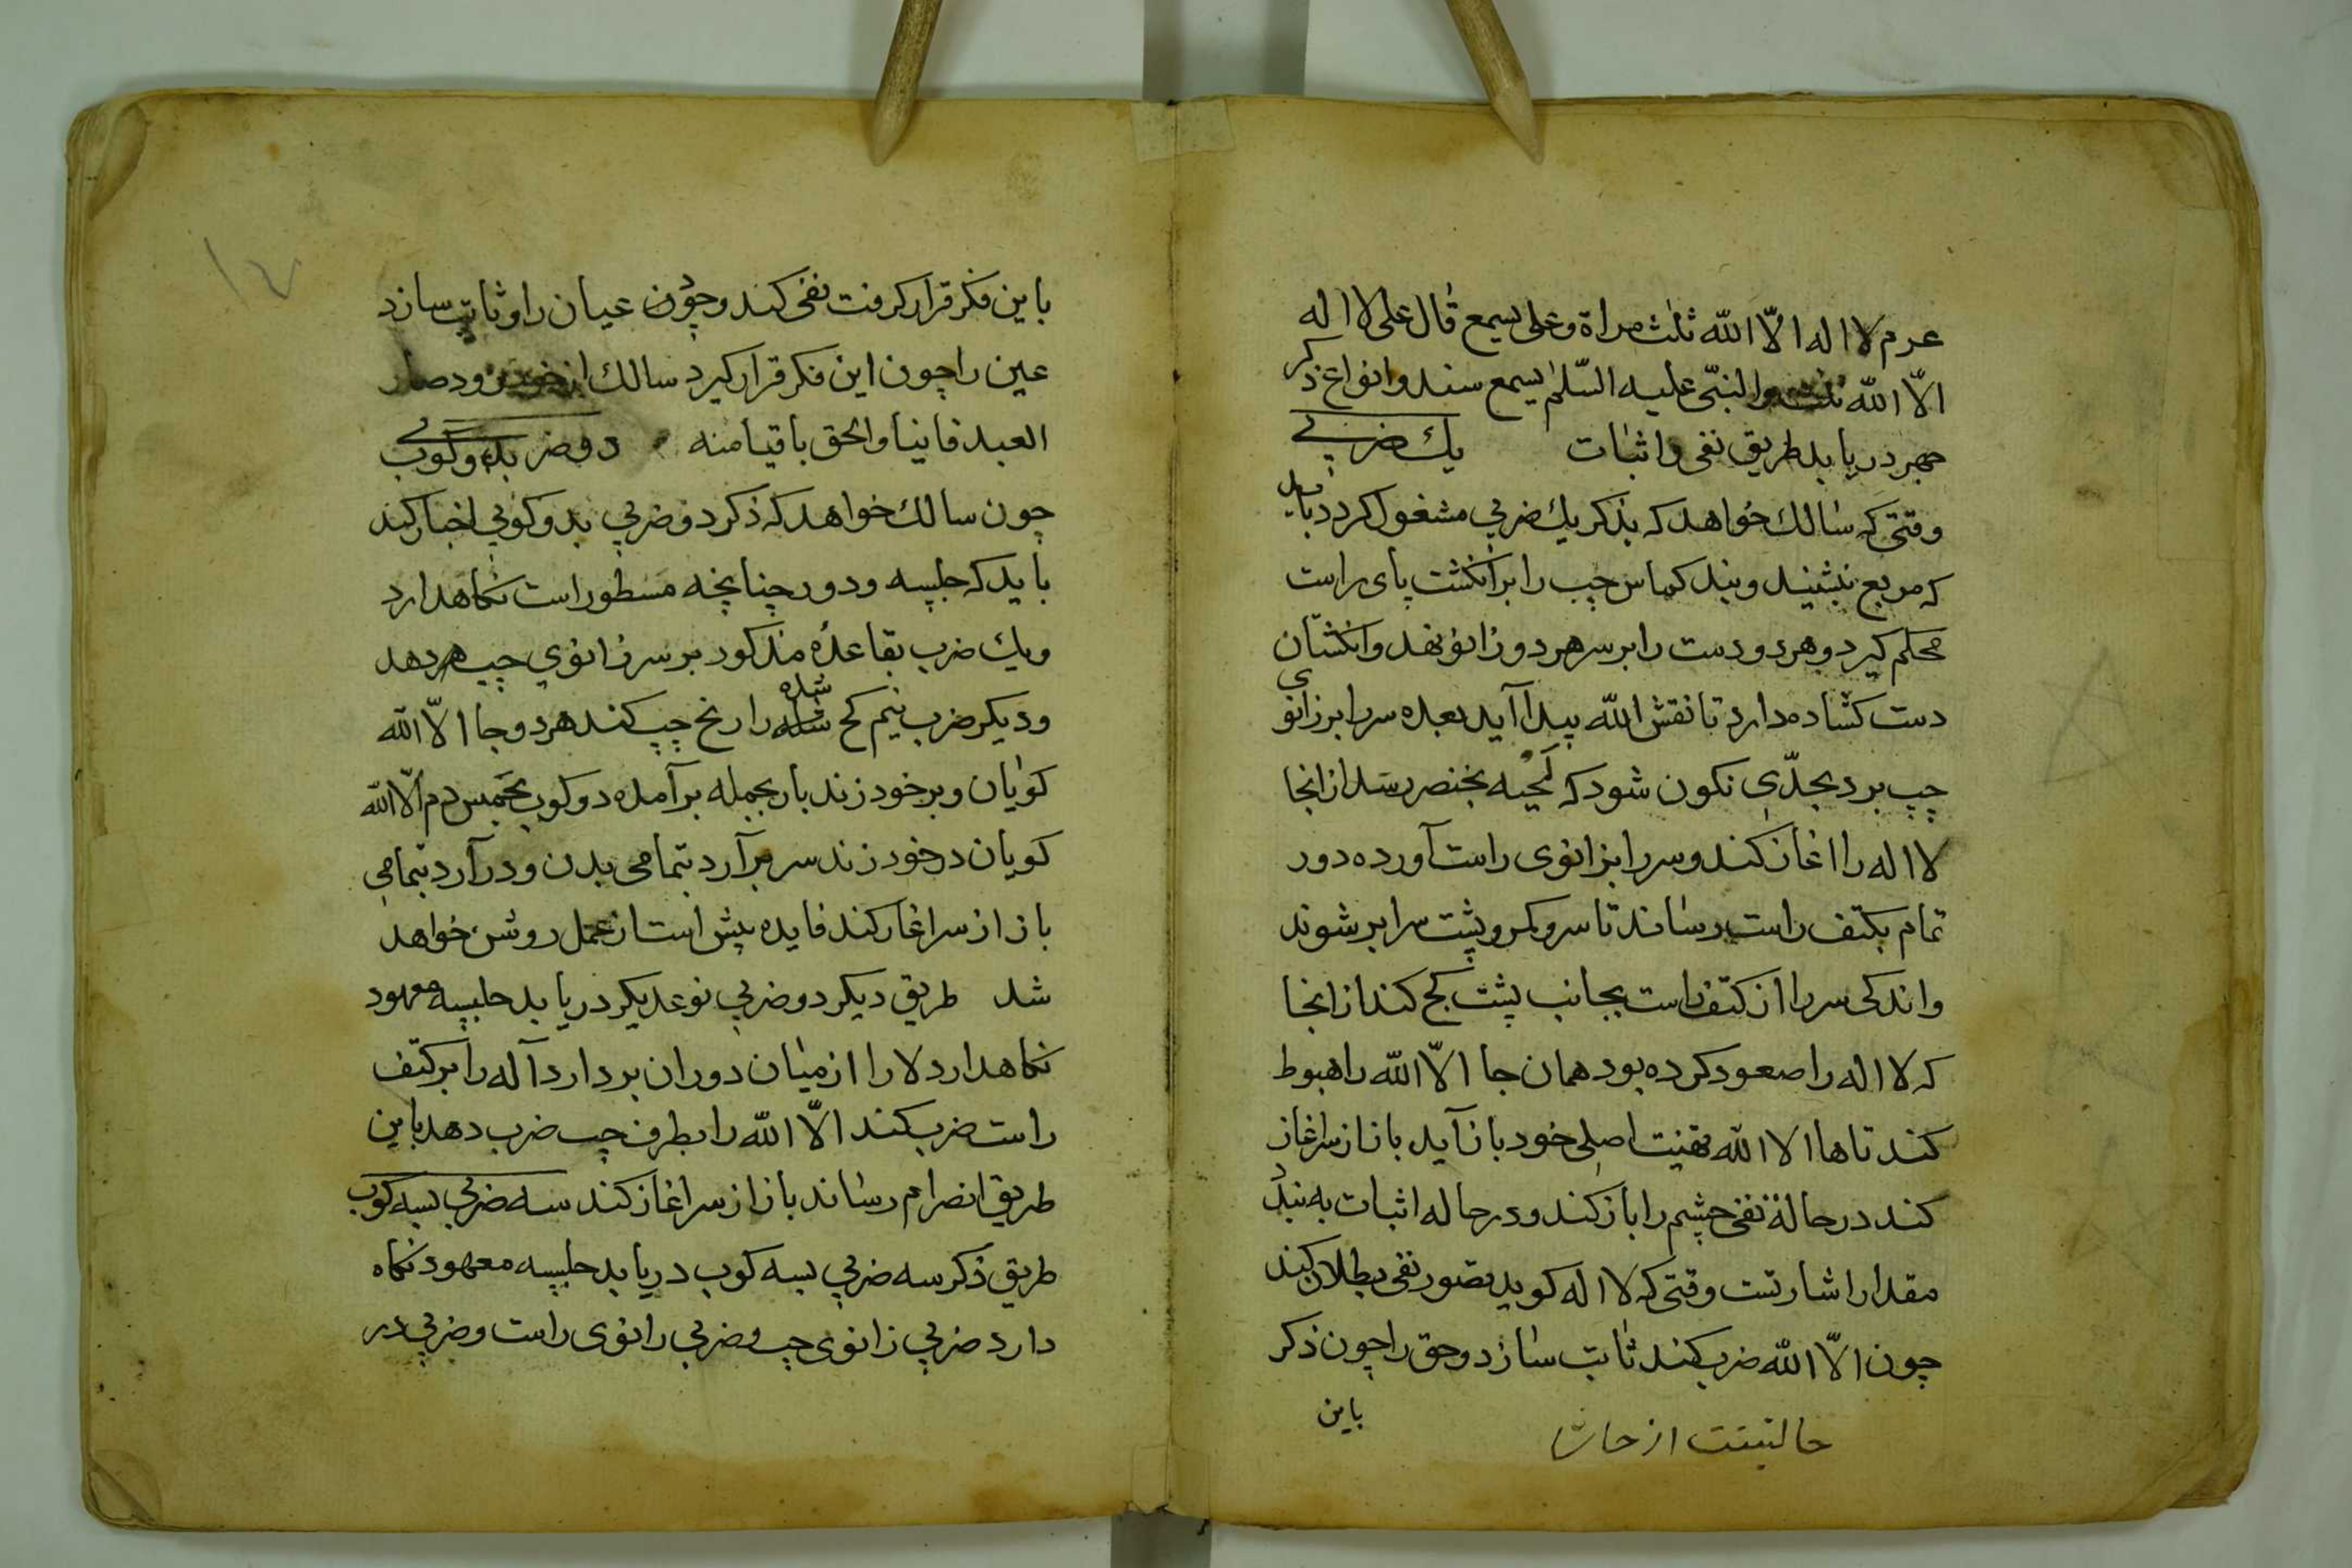 عرم لا اله الّا اللّه ثلث مراة وعلى يسمع قال على لا اله
الّا اللّه ثلث والنبّى عليه السّلم يسمع سند وانواع ذكر
جهر دريابد طريق نفى واثبات يك ضربى
وقتى كه سالك خواهد كه بذكر يك ضربى مشغول كردد بايد
كه مربع بنشيند وبند كماس چپ را بر انكشت پاى راست
محكم كيرد وهر دو دست را بر سر هر دو زانو نهد وانكشتان
دست كشاده دارد تا نقش اللّه پيدا آيد بعده سر را بر زانوى
چپ برد بحدّى نكون شود كه لحيه بخنصر رسد از انجا
لا اله را اغاز كند وسر را بزانوى راست آورده دور
تمام بكتف راست رساند تا سر وكمر وپشت سرا بر شوند
واندكى سر را از كتف راست بجانب پشت كج كند از انجا
كه لا اله را صعود كرده بود همان جا الّا اللّه را هبوط
كند تا ها الا اللّه بهنيت اصلى خود باز آيد باز از سر اغاز
كند در حالة نفى چشم را باز كند ودر حاله اثبات به بندد
مقدار اشارتست وقتى كه لا اله كويد بتصور نفى بطلان كند
چون الّا اللّه ضرب كند ثابت سازد وحق را چون ذكر
باين
باين فكر قرار كرفت نفى كند وچون عيان را وثابت سازد
عين را چون اين فكر قرار كيرد سالك از خود رود صار
العبد فانيا والحق باقيا منه دو ضربى بدو كوب
چون سالك خواهد كه ذكر دو ضربى بدو كوبى اختيار كند
بايد كه جلسه ودور چنانچه مسطور است نكاهدارد
ويك ضرب بقاعدۀ مذكور بر سر زانوى چپ هر دهد
وديكر ضرب نيم كج شده شده را رنح چپ كند هر دو جا الّا اللّه
كويان وبر خود زند بار بجمله بر آمده دو كوب بحبس دم الّا اللّه
كويان در خود زند سر بر آرد بتمامى بدن ودر آرد بتمامى
باز از سر اغاز كند فايده بيش است از عمل روشن خواهد
شد طريق ديكر دو ضربى نوعديكر دريابد جلسه معهود
نكاهدارد لا را از ميان دوران بردارد آله را بر كتف
راست ضرب كند الّا اللّه را بطرف چپ ضرب دهد باين
طريق انصرام رساند باز از سر اغاز كند سه ضربى بسه كوب
طريق ذكر سه ضربى بسه كوب دريابد جلسه معهود نكاه
دارد ضربى زانوى چپ وضربى زانوى راست وضربى در